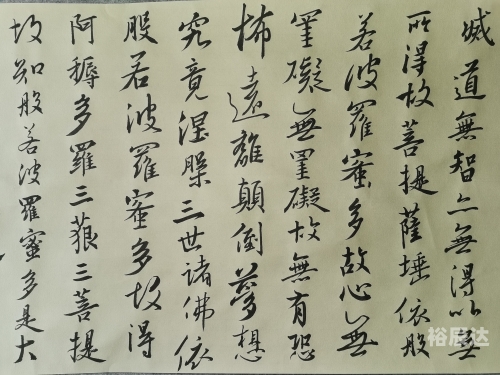 滅道無智亦無得以無
所得故菩提薩埵依般
若波羅蜜多故心無
罣礙無罣礙故無有恐
怖遠離顛倒夢想
究竟涅槃三世諸佛依
般若波羅蜜多故得
阿耨多羅三藐三菩提
故知般若波羅蜜多是大
裕展达